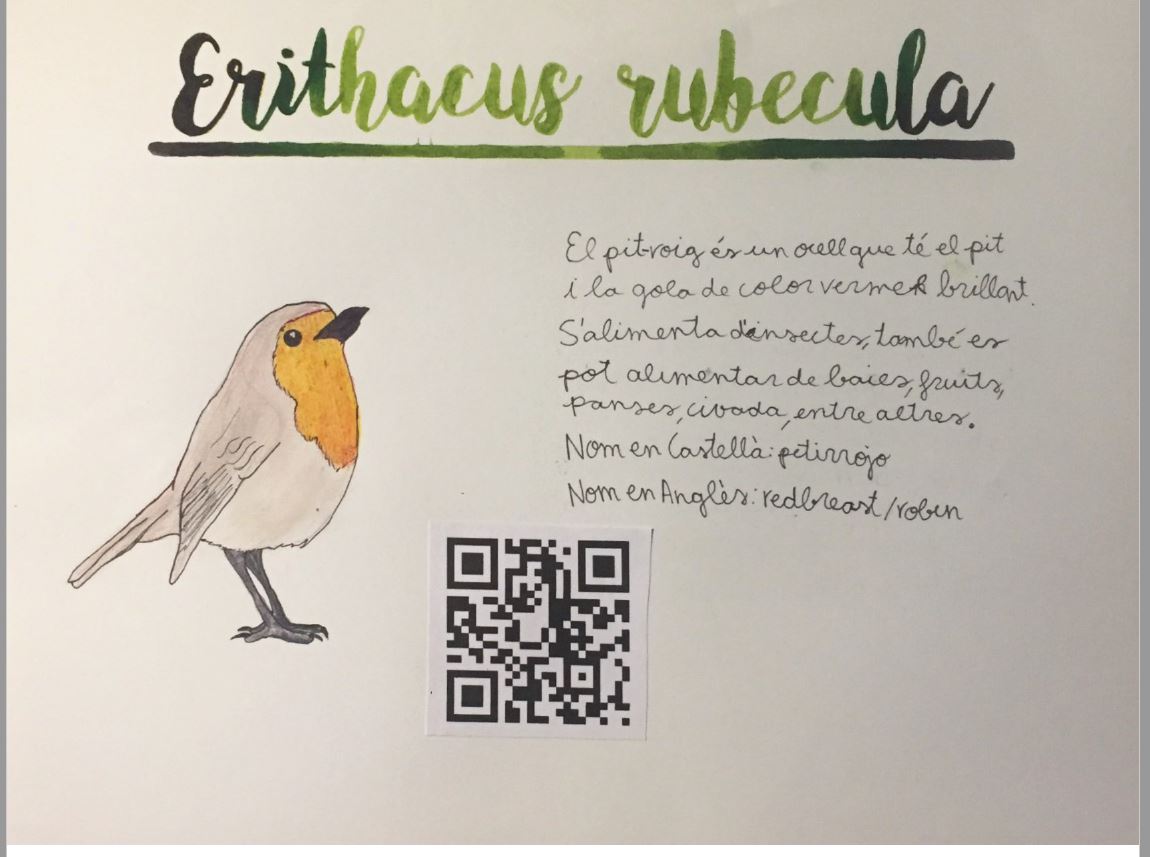 Erithacus rubecula
El pit-roig és un ocell que té el pit
i la gola de color vermell brillant.
S'alimenta d'insectes, també es
pot alimentar de baies, fruits,
panses, civada, entre altres.
Nom en Castellà: petirrojo
Nom en Anglès: redbreast/robin